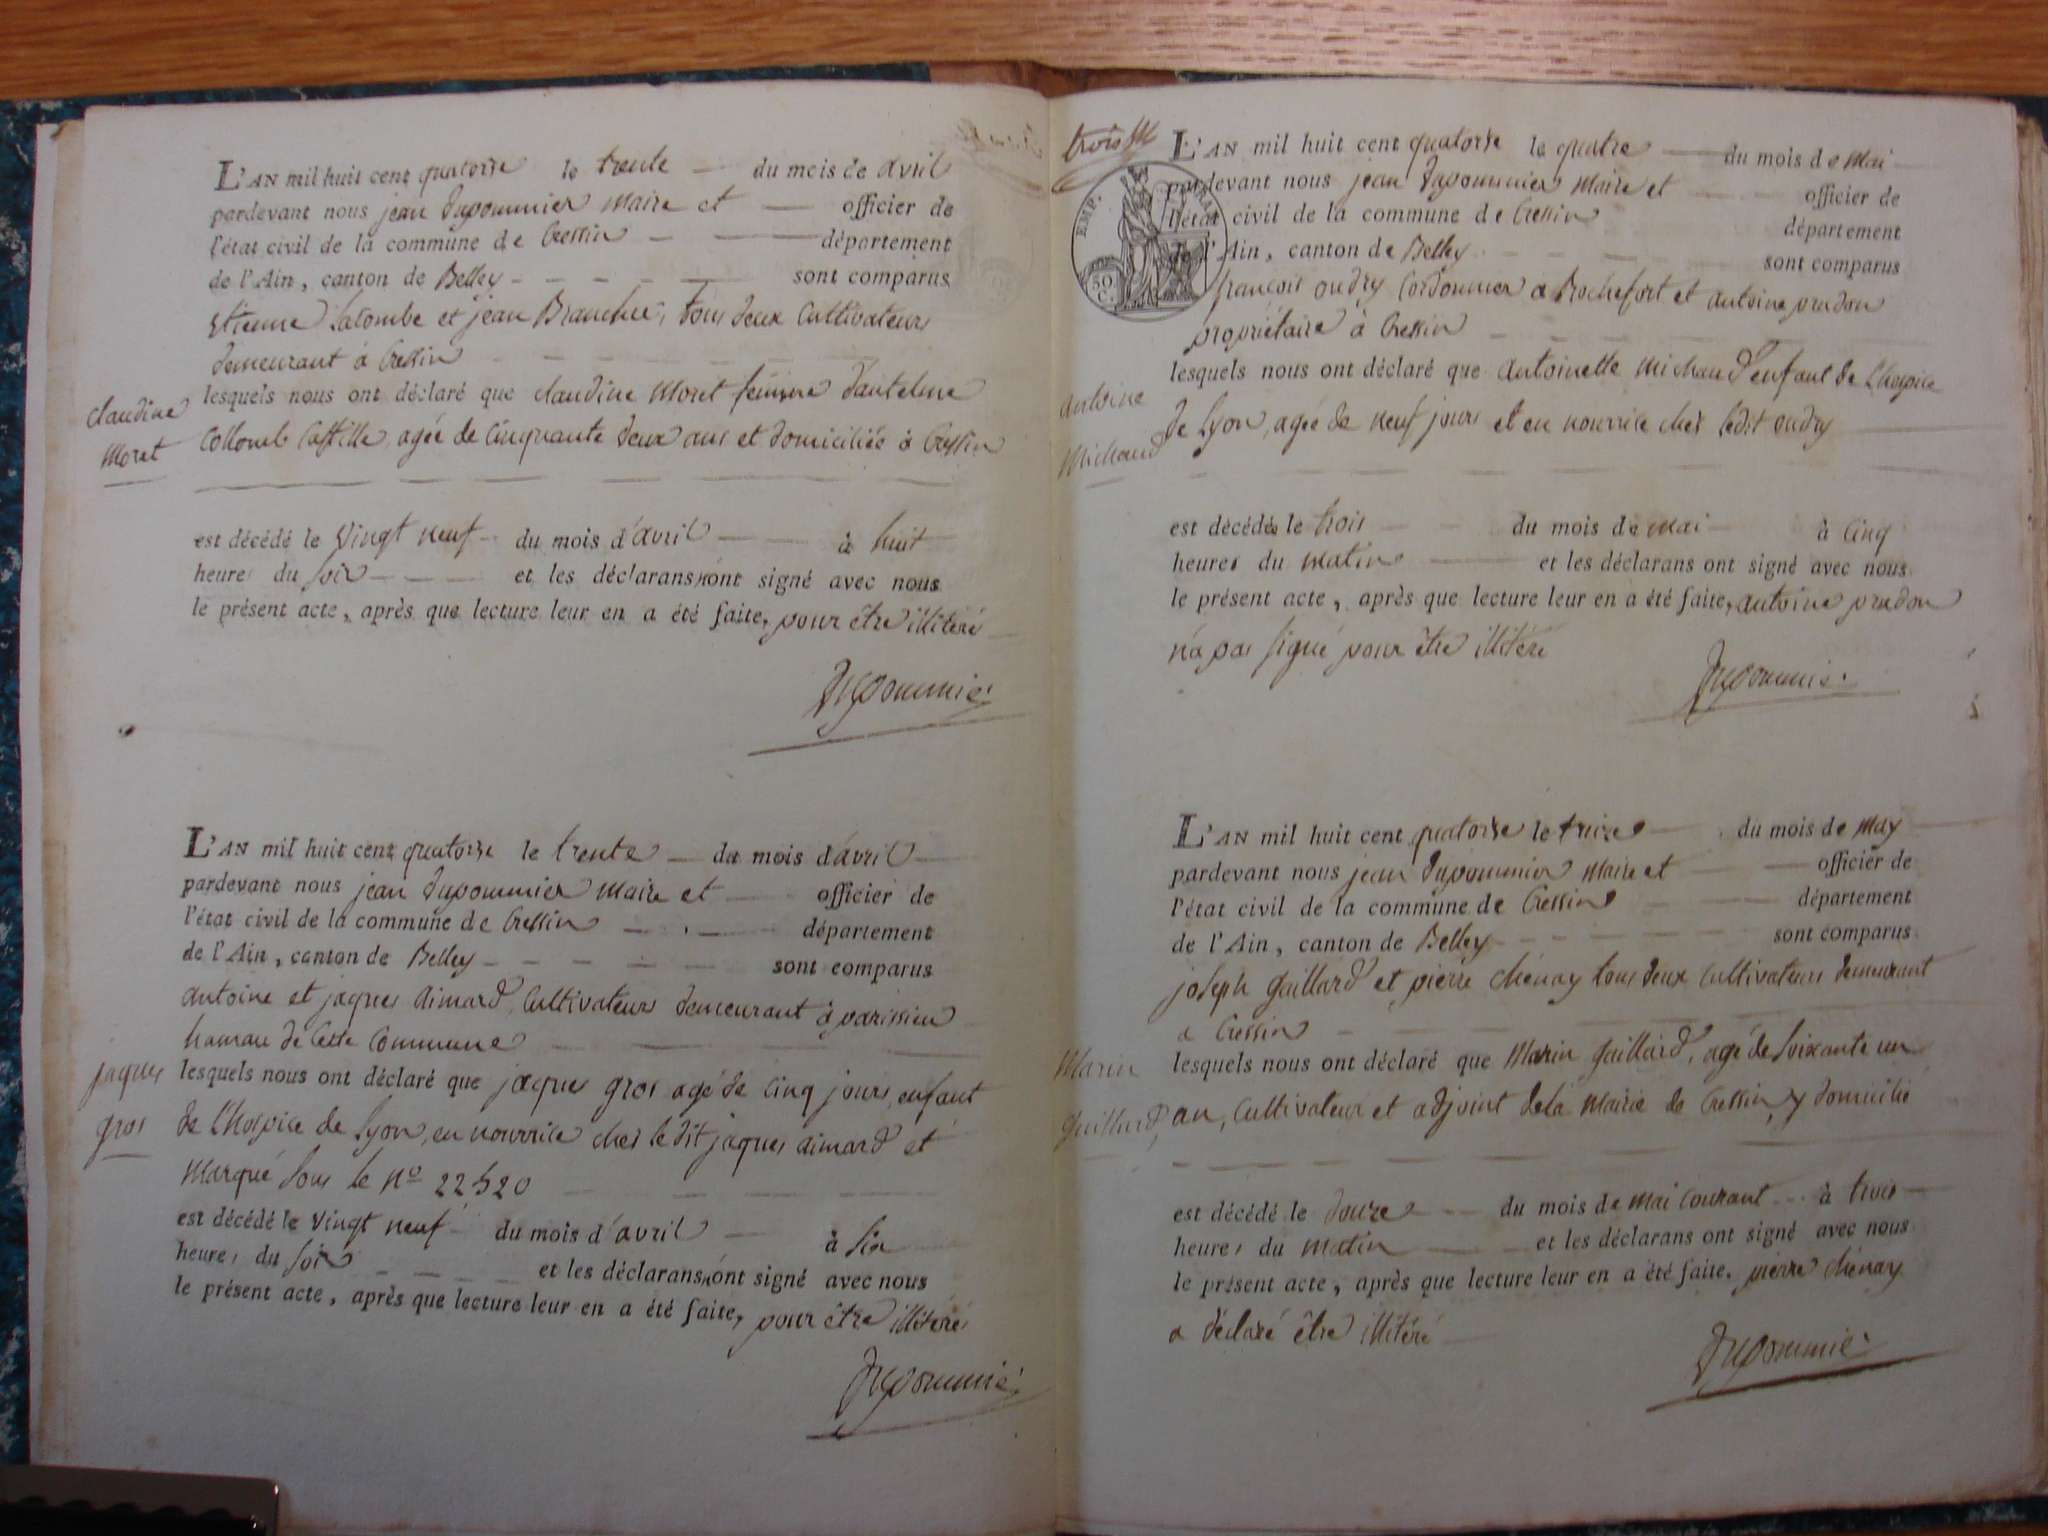 L'AN mil huit cent quatorze le trente du mois de avril
pardevant nous jean Dupommier Maire et officier de
l'état civil de la commune de Cressin département
de l'Ain, canton de Belley sont comparus
Etienne Latombe et jean Branche, tous deux Cultivateurs
demeurant à Cressin
lesquels nous ont déclaré que claudine Moret femme d'antelme
Collomb Castille, agée de Cinquante deux ans et domiciliée à Cressin
claudine
Moret
est décédé le Vingt neuf du mois d'avril à huit
heures du Soir et les déclarans n'ont signé avec nous
le présent acte, après que lecture leur en a été faite, pour être illitéré
Dupommié
L'AN mil huit cent quatorze le trente du mois d'avril
pardevant nous jean Dupommier Maire et officier de
l'état civil de la commune de Cressin département
de l'Ain, canton de Belley sont comparus
antoine et jaques aimard, Cultivateurs demeurant à parissieu
hamau de Cette Commune
lesquels nous ont déclaré que jaques gros agé de Cinq jours, enfant
de l'hospice de Lyon, en nourrice ches le dit jaques aimard et
Marqué Sous le No 22520
jaques
gros
est décédé le vingt neuf du mois d'avril à Six
heures du Soir et les déclarans n'ont signé avec nous
le présent acte, après que lecture leur en a été faite, pour être illitérés
Dupommié
trois
EMP. FRAN.
50 C.
L'AN mil huit cent quatorze le quatre du mois de Mai
pardevant nous jean Dupommier Maire et officier de
l'état civil de la commune de Cressin département
de l'Ain, canton de Belley sont comparus
françois oudry Cordonnier a Rochefort et antoine prudon
propriétaire à Cressin
lesquels nous ont déclaré que antoinette Michaud enfant de L'hospice
de Lyon, agée de neuf jours et en nourrice ches ledit oudry
antoine
Michaud
est décédée le trois du mois de mai à Cinq
heures du matin et les déclarans ont signé avec nous
le présent acte, après que lecture leur en a été faite, antoine prudon
n'a pas signé pour être illitéré
Dupommié
L'AN mil huit cent quatorze le treize du mois de may
pardevant nous jean Dupommier Maire et officier de
l'état civil de la commune de Cressin département
de l'Ain, canton de Belley sont comparus
joseph gaillard et pierre chénay tous deux Cultivateurs demeurant
a Cressin
lesquels nous ont déclaré que Marin gaillard, agé de Soixante un
an, Cultivateur et adjoint de la Mairie de Cressin, y domicilié
Marin
gaillard
est décédé le douze du mois de mai Courant à trois
heures du Matin et les déclarans ont signé avec nous
le présent acte, après que lecture leur en a été faite. pierre chénay
a déclaré être illitéré
Dupommié